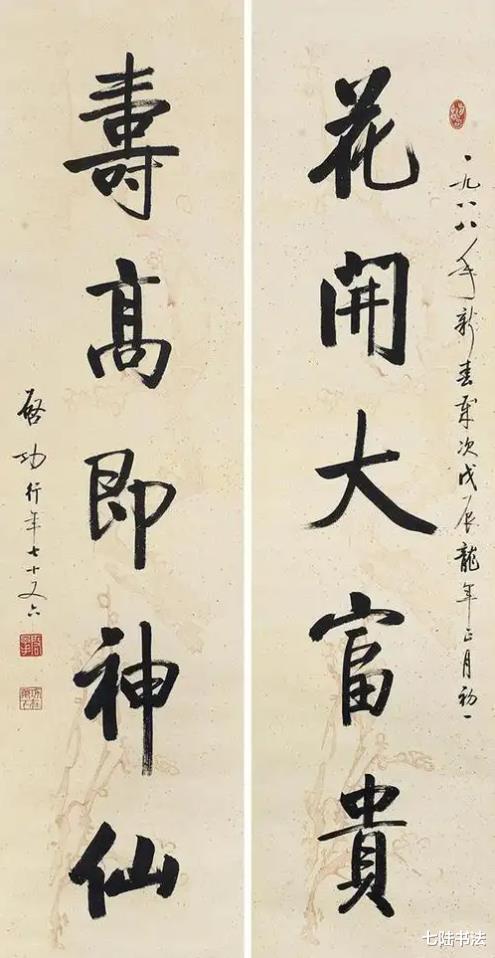 一九八八年新春歲次戊辰龍年正月初一
花開大富貴
壽高即神仙
啓功行年七十又六
七陆书法